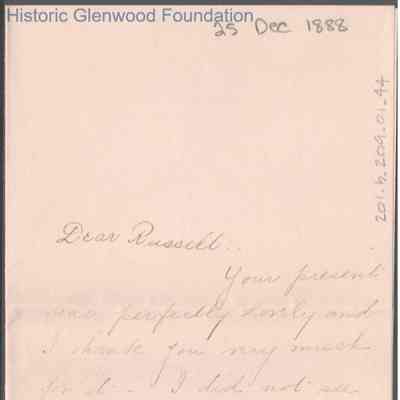 Historic Glenwood Foundation
25 Dec 1888
201.b.209.01.44
Dear Russell..
Your present
was perfectly lovely and
I thank you very much
for it - I did not see